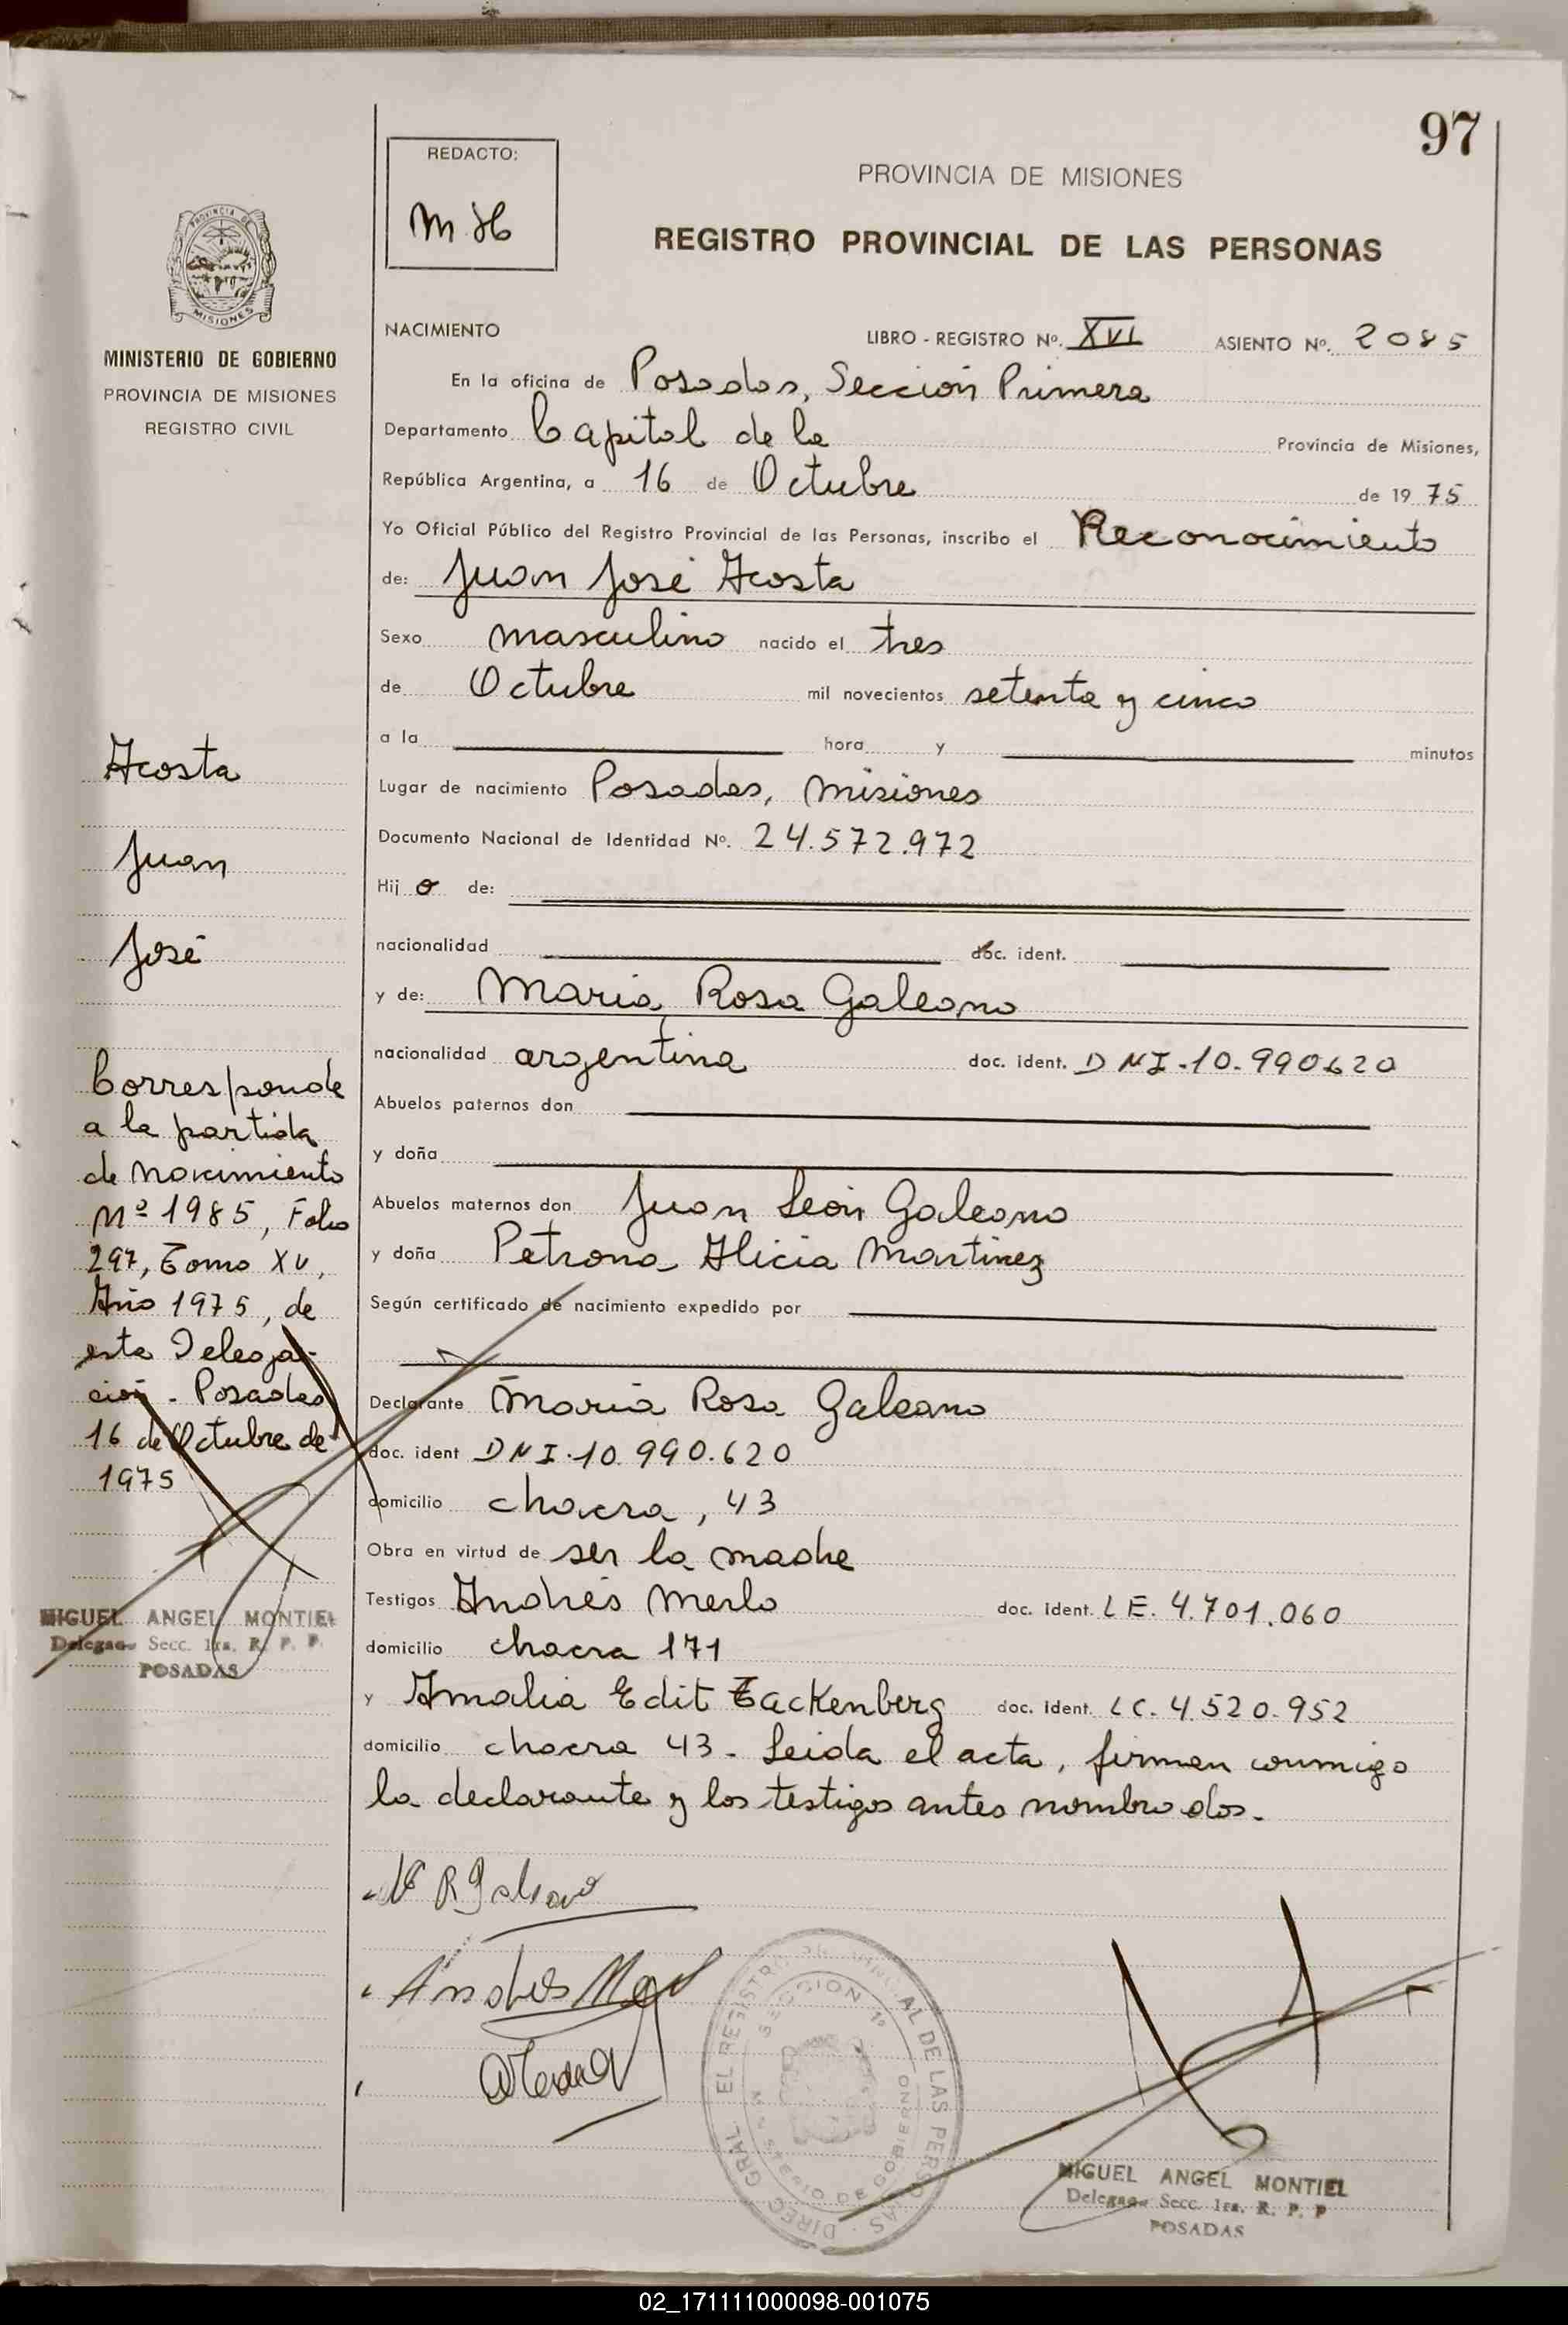 97
REDACTO:
M H
PROVINCIA DE MISIONES
REGISTRO PROVINCIAL DE LAS PERSONAS
PROVINCIA DE
MISIONES
MINISTERIO DE GOBIERNO
PROVINCIA DE MISIONES
REGISTRO CIVIL
NACIMIENTO LIBRO - REGISTRO Nº. XVI ASIENTO Nº. 2085
En la oficina de Posadas, Sección Primera
Departamento Capital de la Provincia de Misiones,
República Argentina, a 16 de Octubre de 19 75
Yo Oficial Público del Registro Provincial de las Personas, inscribo el Reconocimiento
de: Juan José Acosta
Sexo masculino nacido el tres
de Octubre mil novecientos setenta y cinco
a la hora y minutos
Lugar de nacimiento Posadas, Misiones
Documento Nacional de Identidad Nº. 24.572.972
Hij o de:
nacionalidad doc. ident.
y de: Maria Rosa Galeano
nacionalidad argentina doc. ident. DNI-10.990.620
Abuelos paternos don
y doña
Abuelos maternos don Juan León Galeano
y doña Petrona Alicia Martinez
Según certificado de nacimiento expedido por
Declarante Maria Rosa Galeano
doc. ident DNI.10.990.620
domicilio chacra, 43
Obra en virtud de ser la madre
Testigos Andrés Merlo doc. ident. LE. 4.701.060
domicilio chacra 171
y Amalia Edit Tackenberg doc. ident. LC. 4.520.952
domicilio chacra 43 - Leida el acta, firman conmigo
la declarante y los testigos antes nombrados.
Acosta
Juan
José
Corresponde
a la partida
de nacimiento
Nº 1985, Folio
297, Tomo XV,
Año 1975, de
esta Delega-
ción - Posadas
16 de Octubre de
1975
MIGUEL ANGEL MONTIEL
Delegado Secc. 1ra. R. P. P.
POSADAS
M R Galeano
Andrés
DIREC. GRAL. EL REGISTRO PROVINCIAL DE LAS PERSONAS
SECCION 1º
MINISTERIO DE GOBIERNO
MIGUEL ANGEL MONTIEL
Delegado Secc. 1ra. R. P. P
POSADAS
02_171111000098-001075